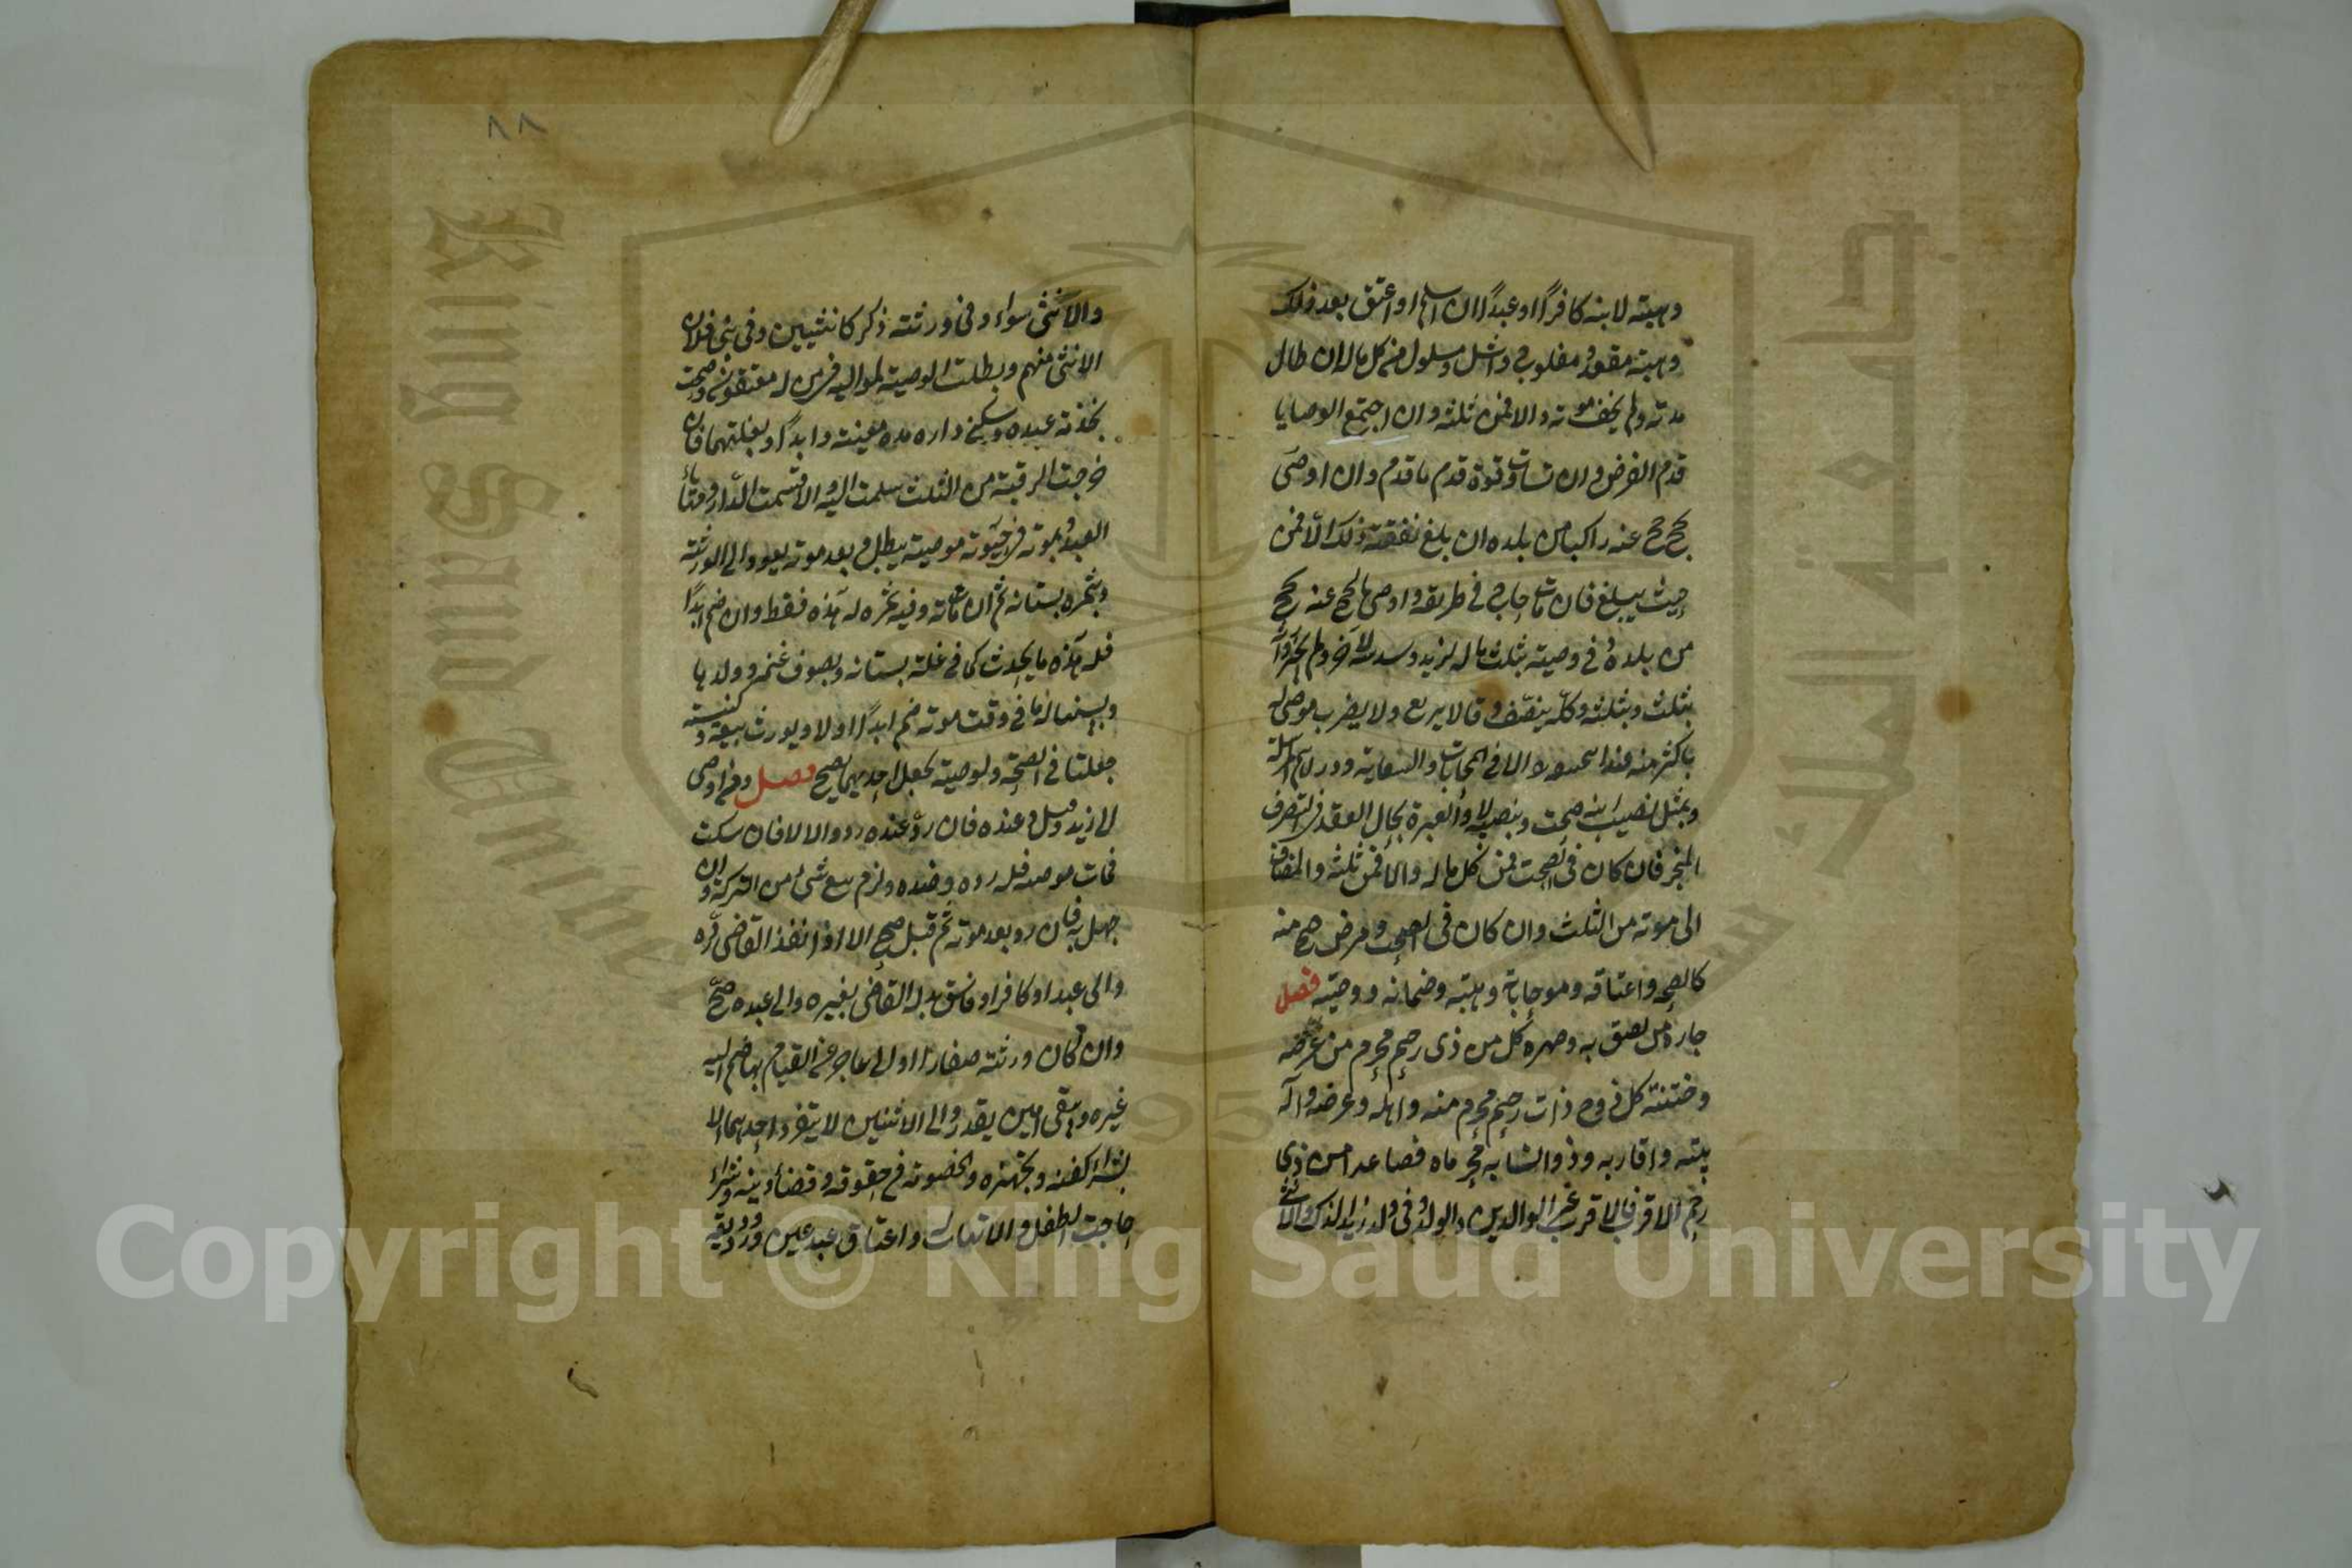 وهبته لابنه كافرًا او عبدًا ان اسلم او اعتق بعد ذلك
وهبة مقعد ومفلوج واشل ومسلول من كل ماله ان طال
مدته ولم يخف موته والا فمن ثلثه وان اجتمع الوصايا
قدم الفرض وان تساوت قوة قدم ما قدم وان اوصى
بحج حج عنه راكبا من بلده ان بلغ نفقته ذلك والا فمن
حيث يبلغ فان مات حاج في طريقه واوصى بالحج عنه يحج
من بلده وفي وصيته بثلث ماله لزيد وسدسه لآخر ولم يجيزوا
بثلث وبثلثه وكله ينصف وقالا يربع ولا يضرب موصى له
باكثر منه عند ابي حنيفة الا في المحابات والسعاية والدراهم المرسلة
وبمثل نصيب ابنه صحت وبنصيبه لا والعبرة بحال العقد في التصرف
المنجز فان كان في الصحت فمن كل ماله والا فمن ثلثه والمضاف
الى موته من الثلث وان كان في الصحت ومرض صح منه
كالصحة واعتاقه ومحاباة وهبته وضمانه ووصيته فصل
جاره من لصق به وصهره كل من ذي رحم محرم من عرسه
وختنه كل زوج ذات رحم محرم منه واهله وعرسه وآله
بيته واقاربه وذو انسابه محرماه فصاعدا من ذي
رحم الاقرب فالاقرب غير الوالدين والولد وفي ولد زيد الذكر والانثى
٨٨
والانثى سواء وفي ورثته ذكر كانثيين وفي بني فلان
الانثى منهم وبطلت الوصية لمواليه فيمن له معتقون وصحت
بخدمة عبده وسكنى داره مدة معينة وابدًا وبغلتهما فان
خرجت الرقبة من الثلث سلمت اليه والا قسمت الدار وتهايأ
العبد وبموته في حيوته موصيه يبطل وبعد موته يعود الى الورثة
وبثمرة بستانه ثم ان مات وفيه ثمره له هذه فقط وان ضم ابدًا
فله هذه ما يحدث كما في غلة بستانه وبصوف غنمه وولدها
ولبنها له ما في وقت موته ضم ابدًا اولا ويورث بيعة وكنيسة
جعلتا في الصحة والوصية بجعل احديهما يصح فصل ومن اوصى
الى زيد وقبل عنده فان رد عنده رد والا لا فان سكت
فمات موصيه فله رده وضده ولزم بيع شئ من التركة وان
جهل به فان رد بعد موته ثم قبل صح الا اذا نفذ القاضي رده
والى عبد او كافر او فاسق بدله القاضي بغيره والى عبده صح
وان كان ورثته صغارا او الى عاجز عن القيام بها ضم اليه
غيره ويبقى امين يقدر والى الاثنين لا يتفرد احدهما الا
بشراء كفنه وتجهيزه والخصومة في حقوقه وقضاء دينه وشراء
حاجت الطفل والاتهاب له واعتاق عبد عين ورد وديعة